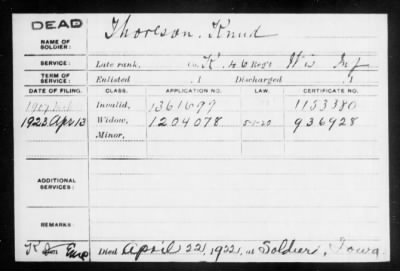 DEAD
NAME OF SOLDIER: Thoreson, Knud
SERVICE: Late rank, Co. K. 46 Reg't Wis Inf
TERM OF SERVICE: Enlisted , 1 Discharged , 1
DATE OF FILING. CLASS. APPLICATION NO. LAW. CERTIFICATE NO.
1907 Invalid, 1361699 1153380
1923 Apr 13 Widow, 1204078 5-1-20 936928
Minor,
ADDITIONAL SERVICES:
REMARKS:
Died April 22, 1922, at Soldier, Iowa